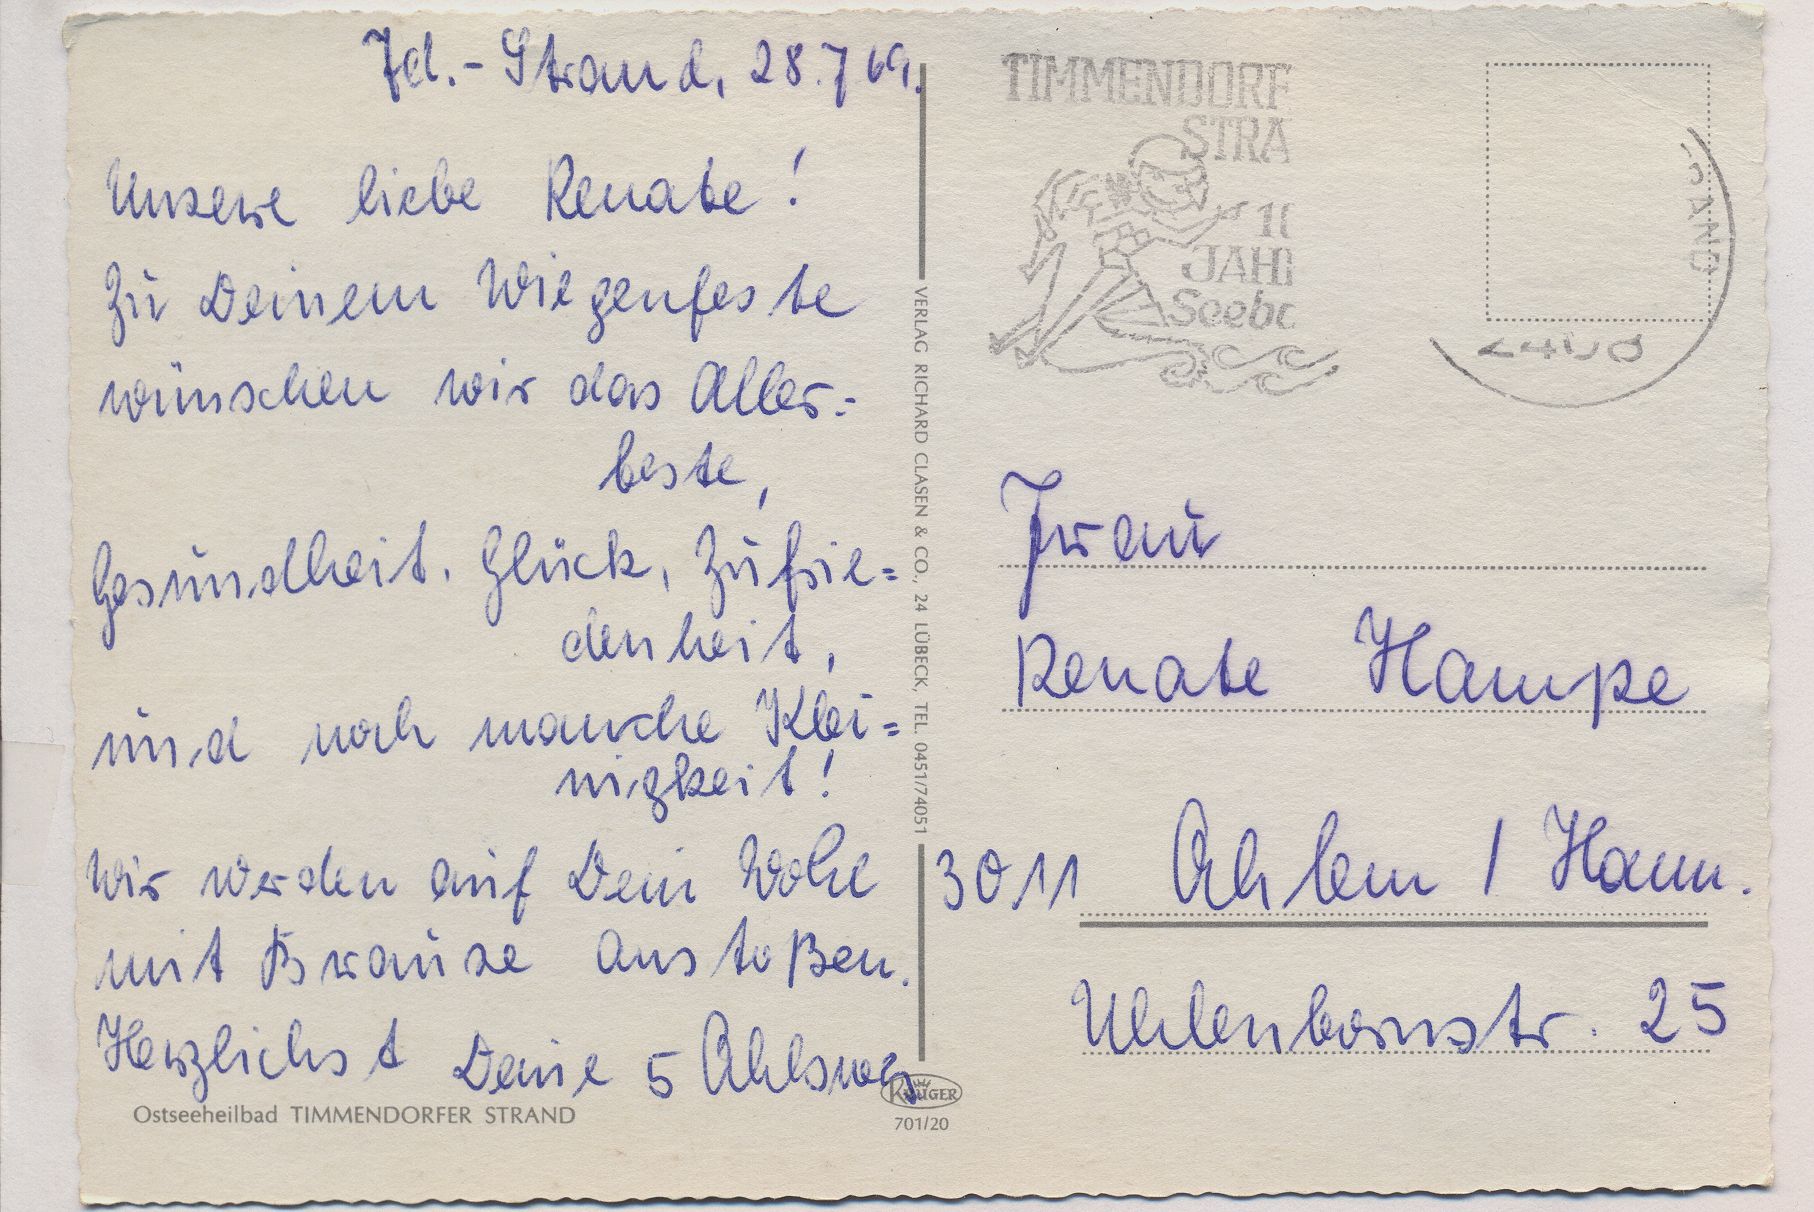 Td.-Strand, 28.7.69.
Unsere liebe Renate!
Zu Deinem Wiegenfeste
wünschen wir das Aller=
beste,
Gesundheit. Glück, Zufrie=
denheit,
und noch manche Klei=
nigkeit!
Wir werden auf Dein Wohl
mit Brause anstoßen.
Herzlichst Deine 5
Ostseeheilbad TIMMENDORFER STRAND
VERLAG RICHARD CLASEN & CO., 24 LÜBECK, TEL. 0451/74051
KRÜGER
701/20
TIMMENDORF
STRA
JAH
Seeb
Frau
Renate Hampe
3011 Ahlem / Hann.
Uhlenbornstr. 25